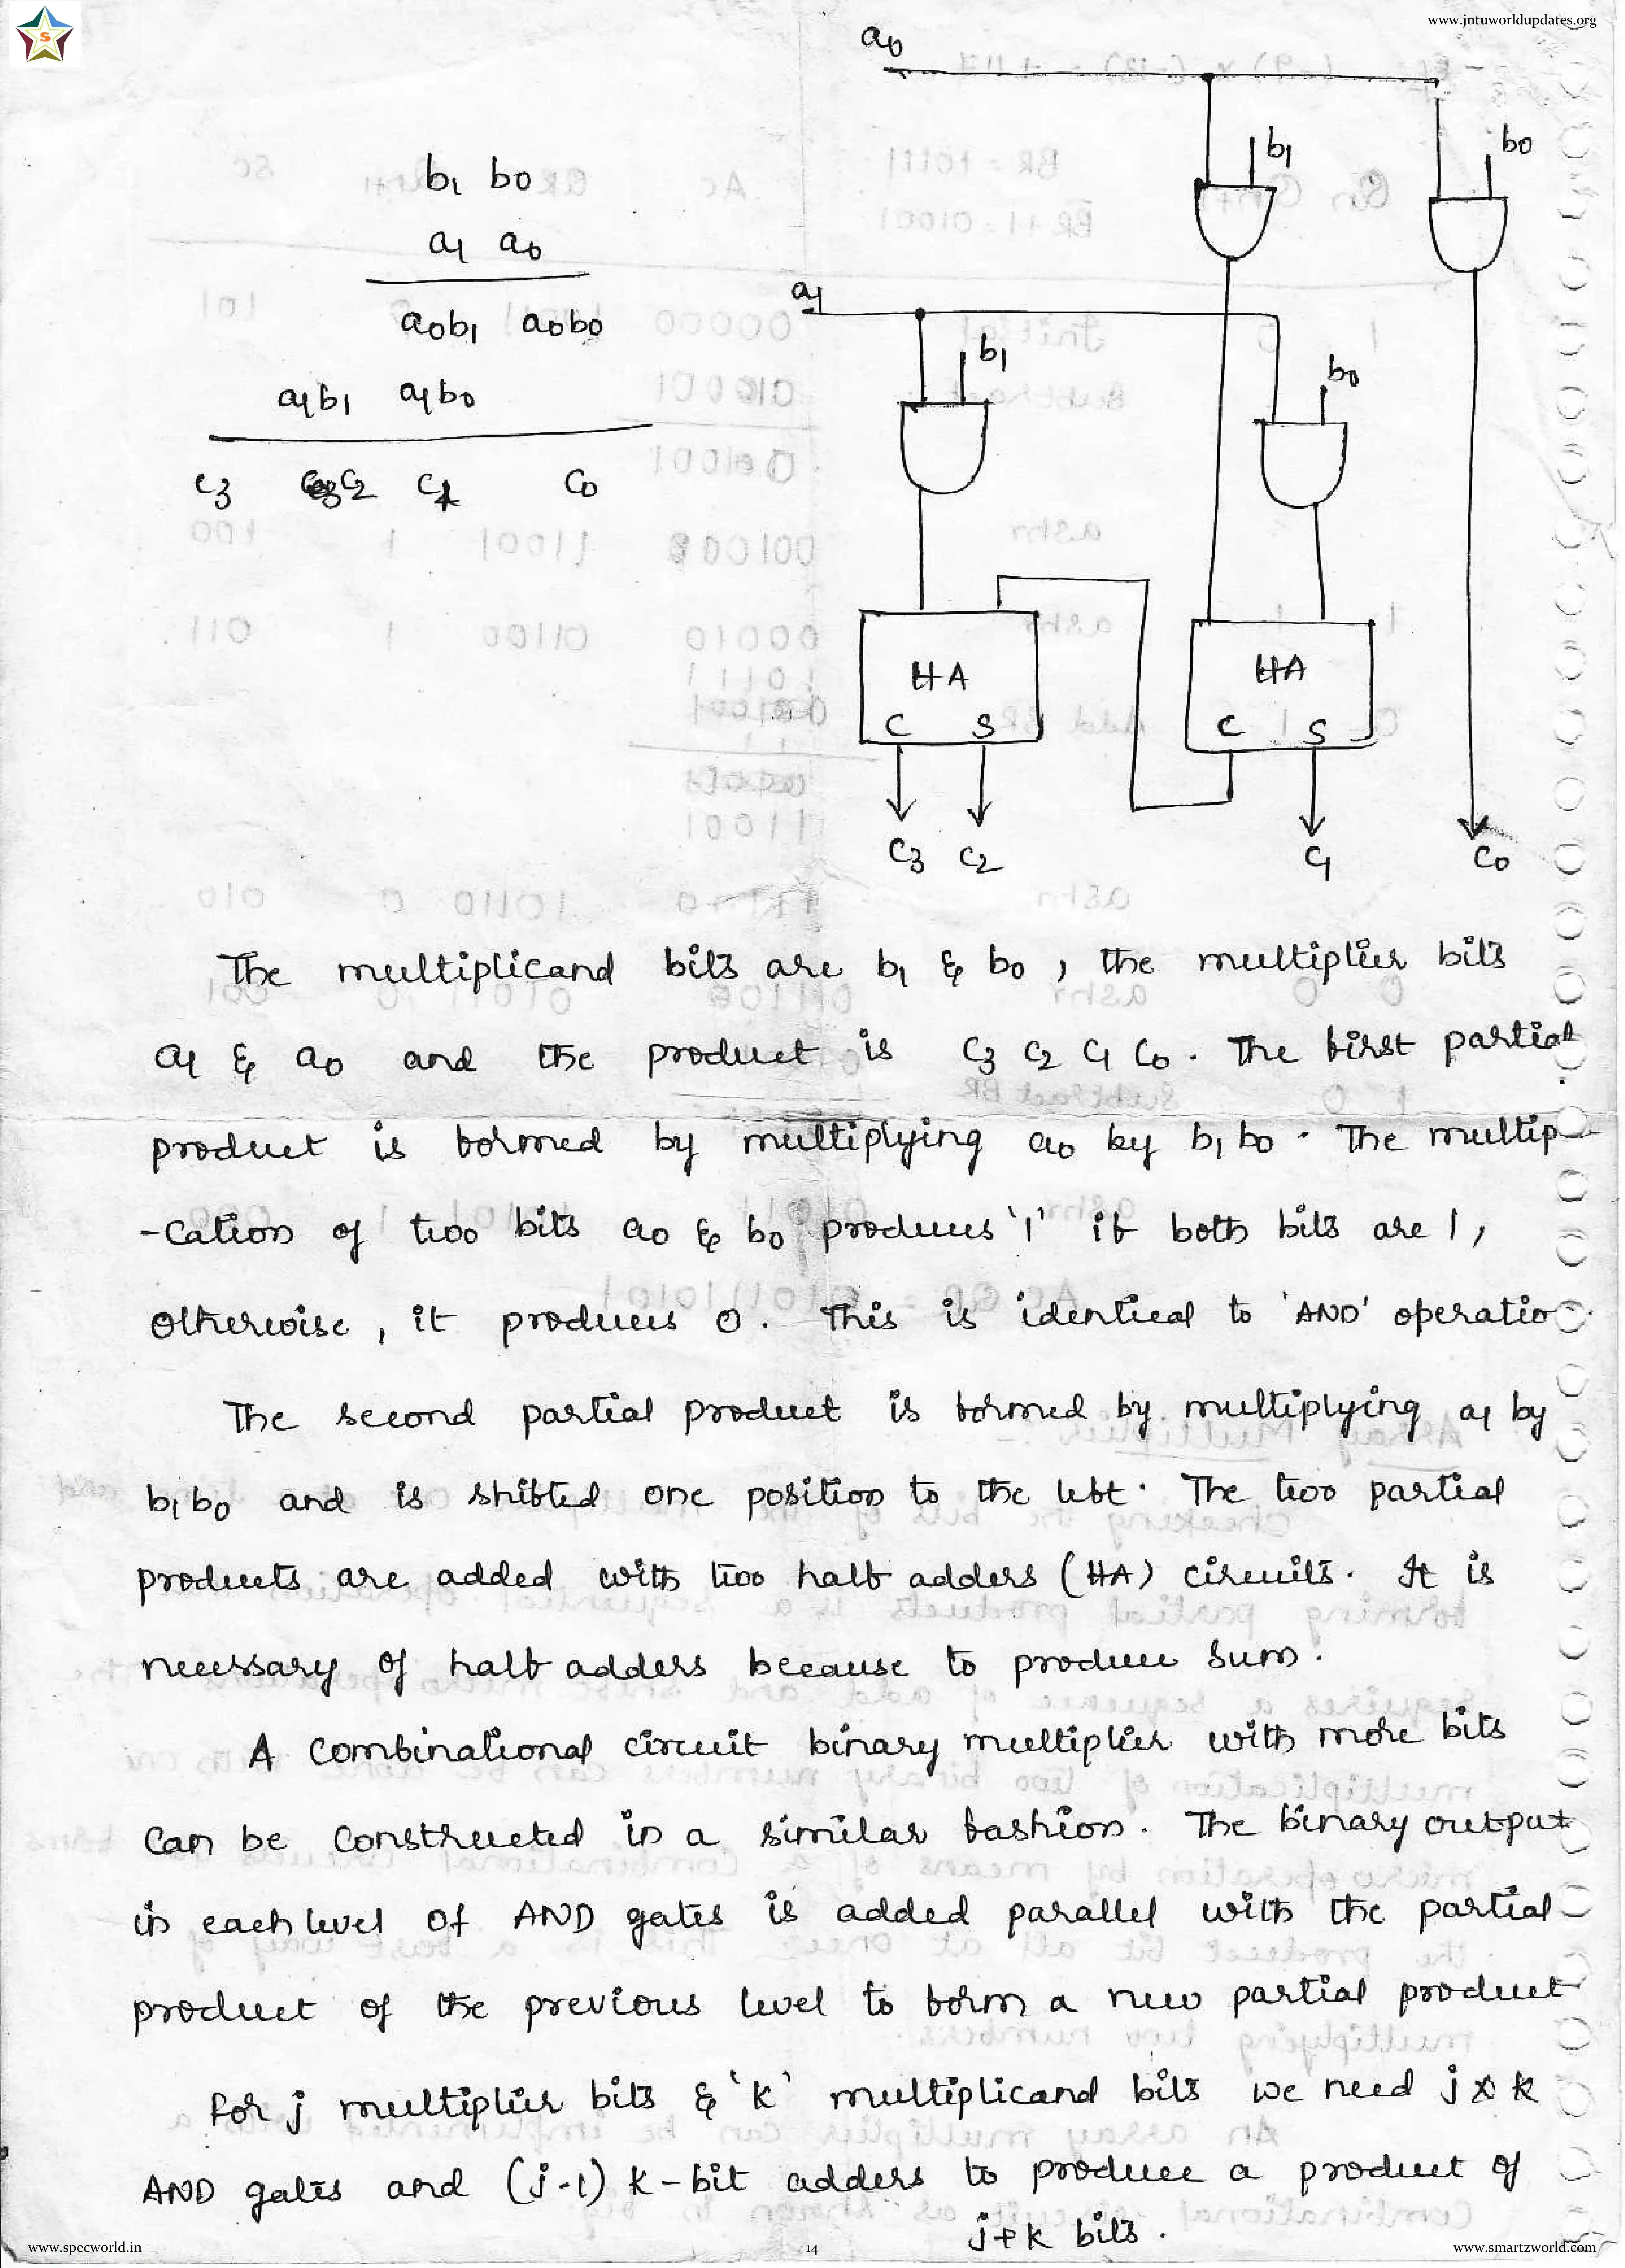 www.jntuworldupdates.org
S
b1 b0
a1 a0
a0b1 a0b0
a1b1 a1b0
c3 c2 c1 c0
a0
b1
b0
a1
b1
b0
HA
C S
HA
C S
C3 C2 C1 C0
The multiplicand bits are b1 & b0 , the multiplier bits
a1 & a0 and the product is C3 C2 C1 C0 . The first partial
product is formed by multiplying a0 by b1 b0 . The multip-
-cation of two bits a0 & b0 produces '1' if both bits are 1 ,
otherwise , it produces 0 . This is identical to 'AND' operatio
The second partial product is formed by multiplying a1 by
b1 b0 and is shifted one position to the left . The two partial
products are added with two half adders (HA) circuits . It is
necessary of half adders because to produce sum .
A combinational circuit binary multiplier with more bits
can be constructed in a similar fashion . The binary output
in each level of AND gates is added parallel with the partial
product of the previous level to form a new partial product
for j multiplier bits & 'k' multiplicand bits we need j x k
AND gates and (j-1) k-bit adders to produce a product of
j+k bits .
www.specworld.in
14
www.smartzworld.com